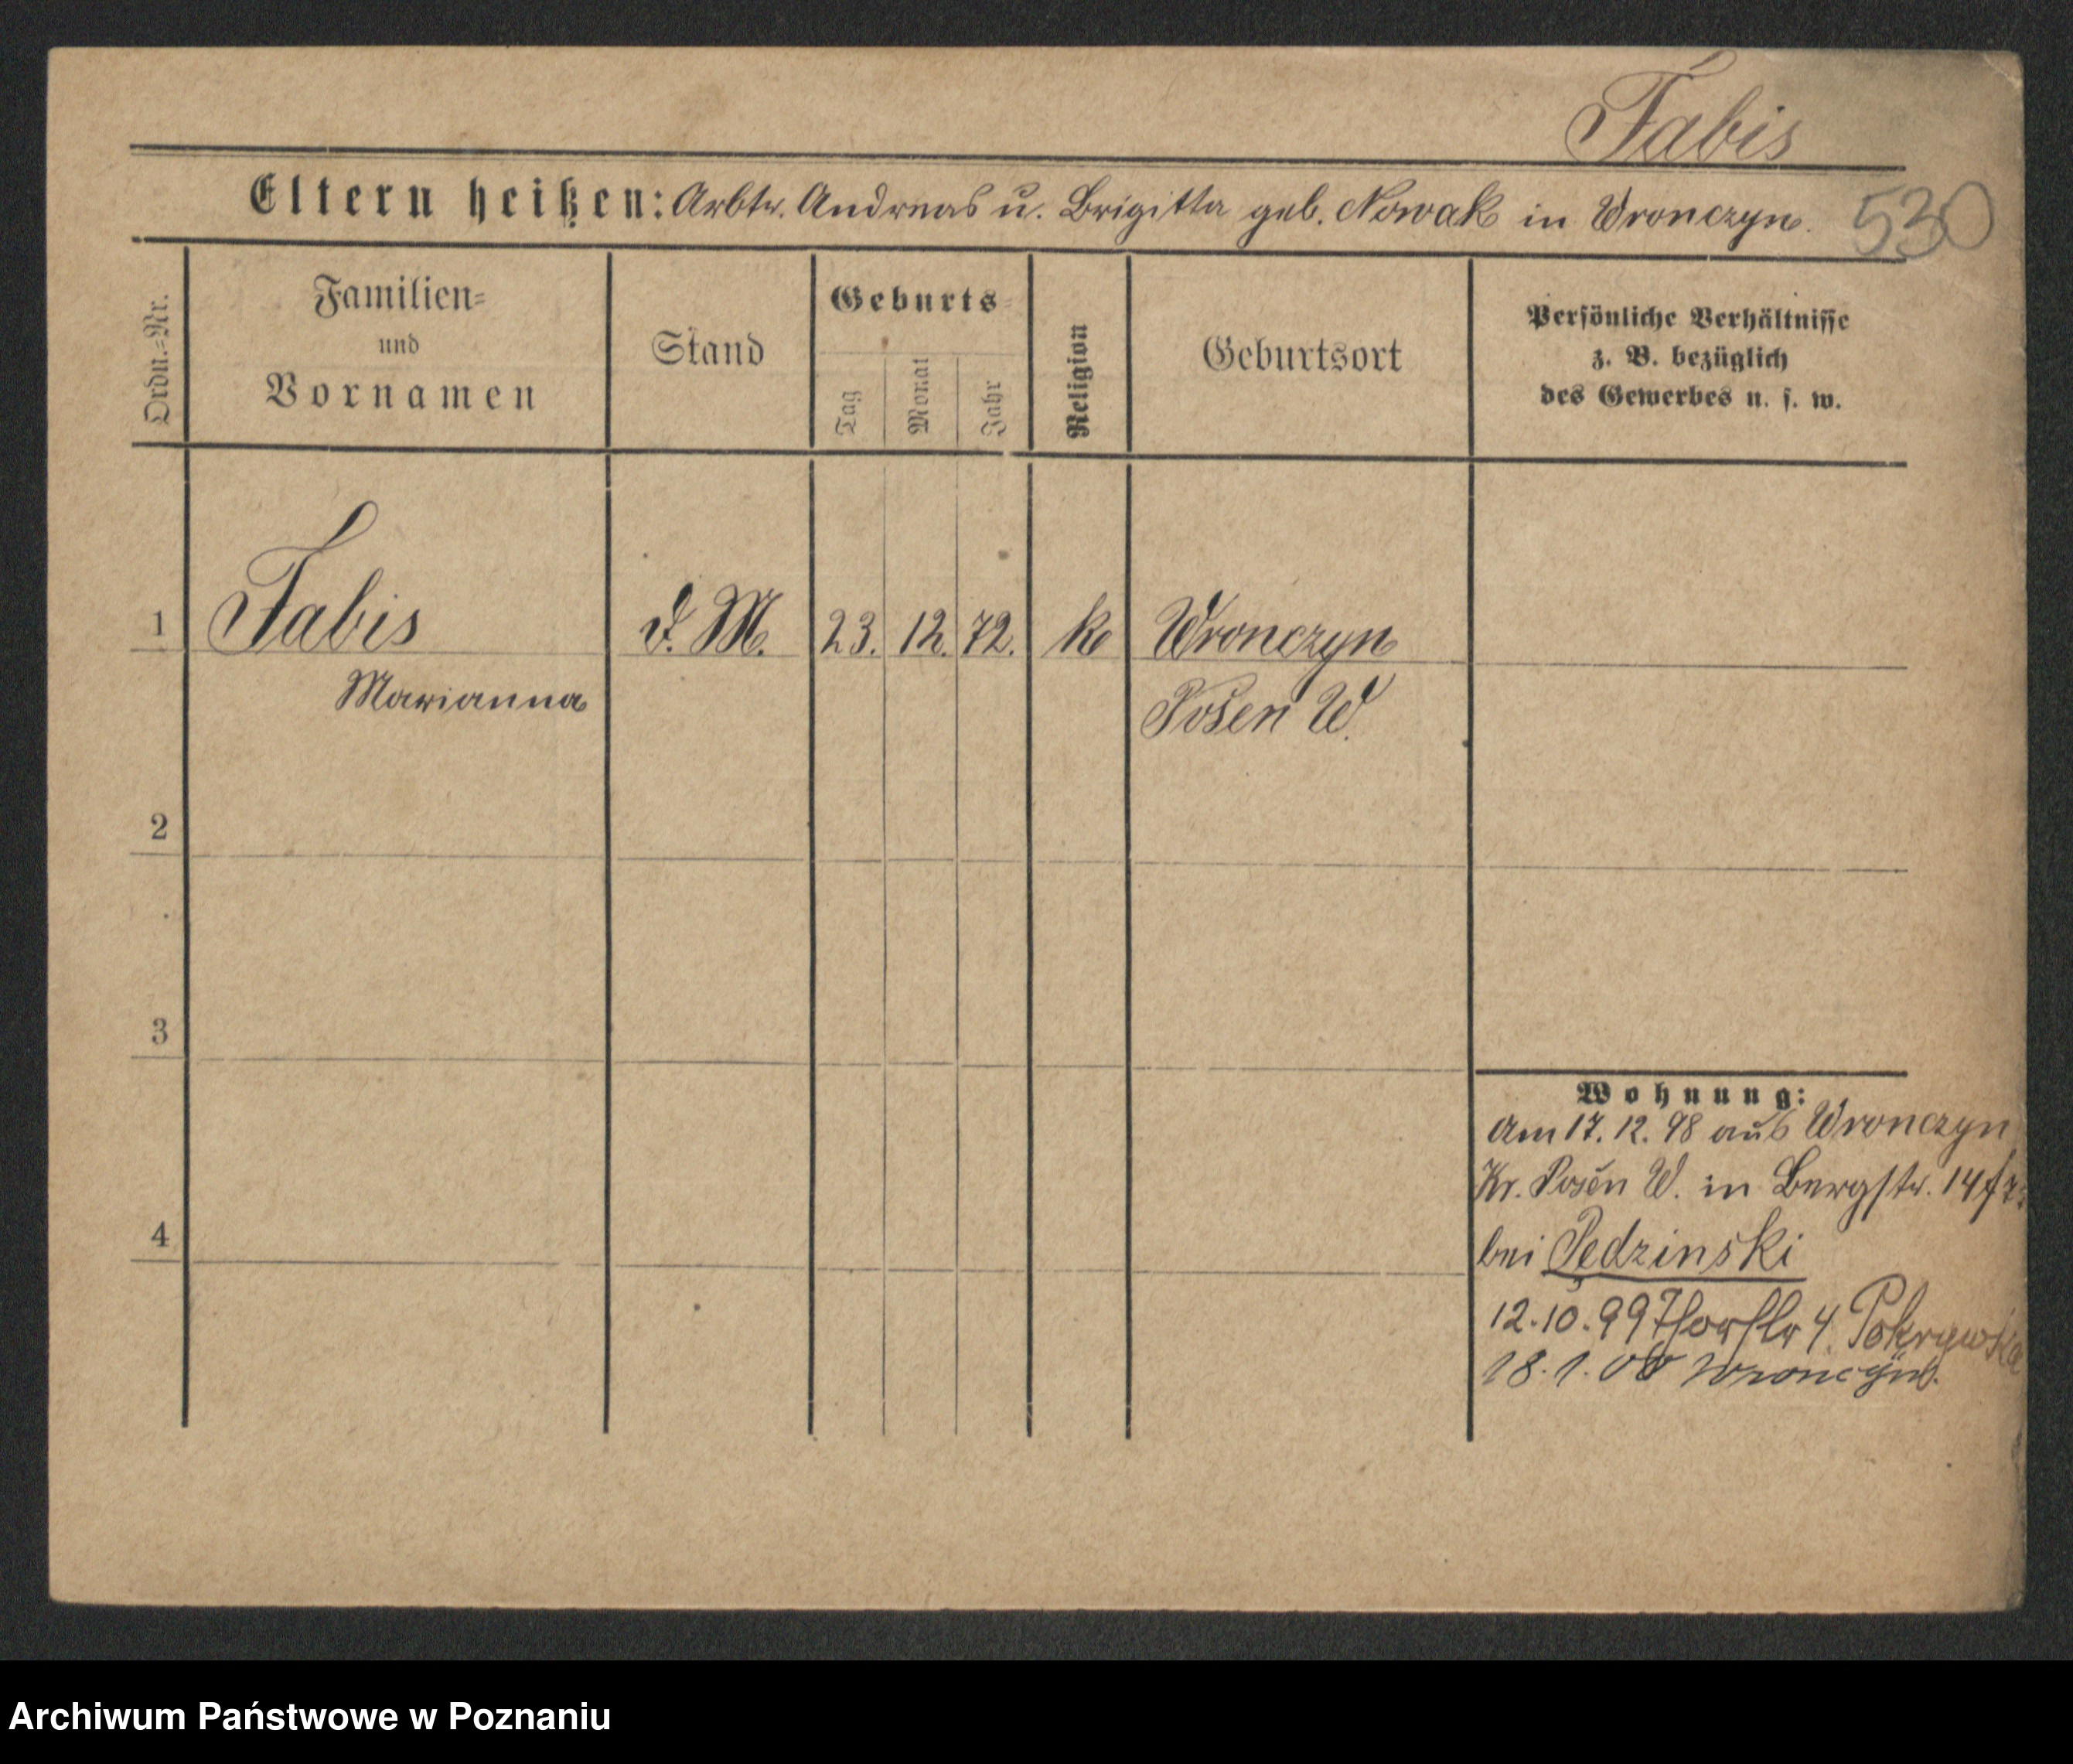 Tabis
Eltern heißen: Arbtr. Andreas u. Brigitta geb. Nowak in Wronczyn.
530
Ordn.=Nr.
Familien=
und
Vornamen
Stand
Geburts=
Tag
Monat
Jahr
Religion
Geburtsort
Persönliche Verhältnisse
z. B. bezüglich
des Gewerbes u. s. w.
1 Tabis d. M. 23. 12. 72. k Wronczyn
Marianna Posen W.
2
3
4
Wohnung:
Am 17. 12. 98 aus Wronczyn
Kr. Posen W. in Bergstr. 14
bei Pedzinski
12.10.99 4. Pokrywska
18.1.00 Wronczyn.
Archiwum Państwowe w Poznaniu